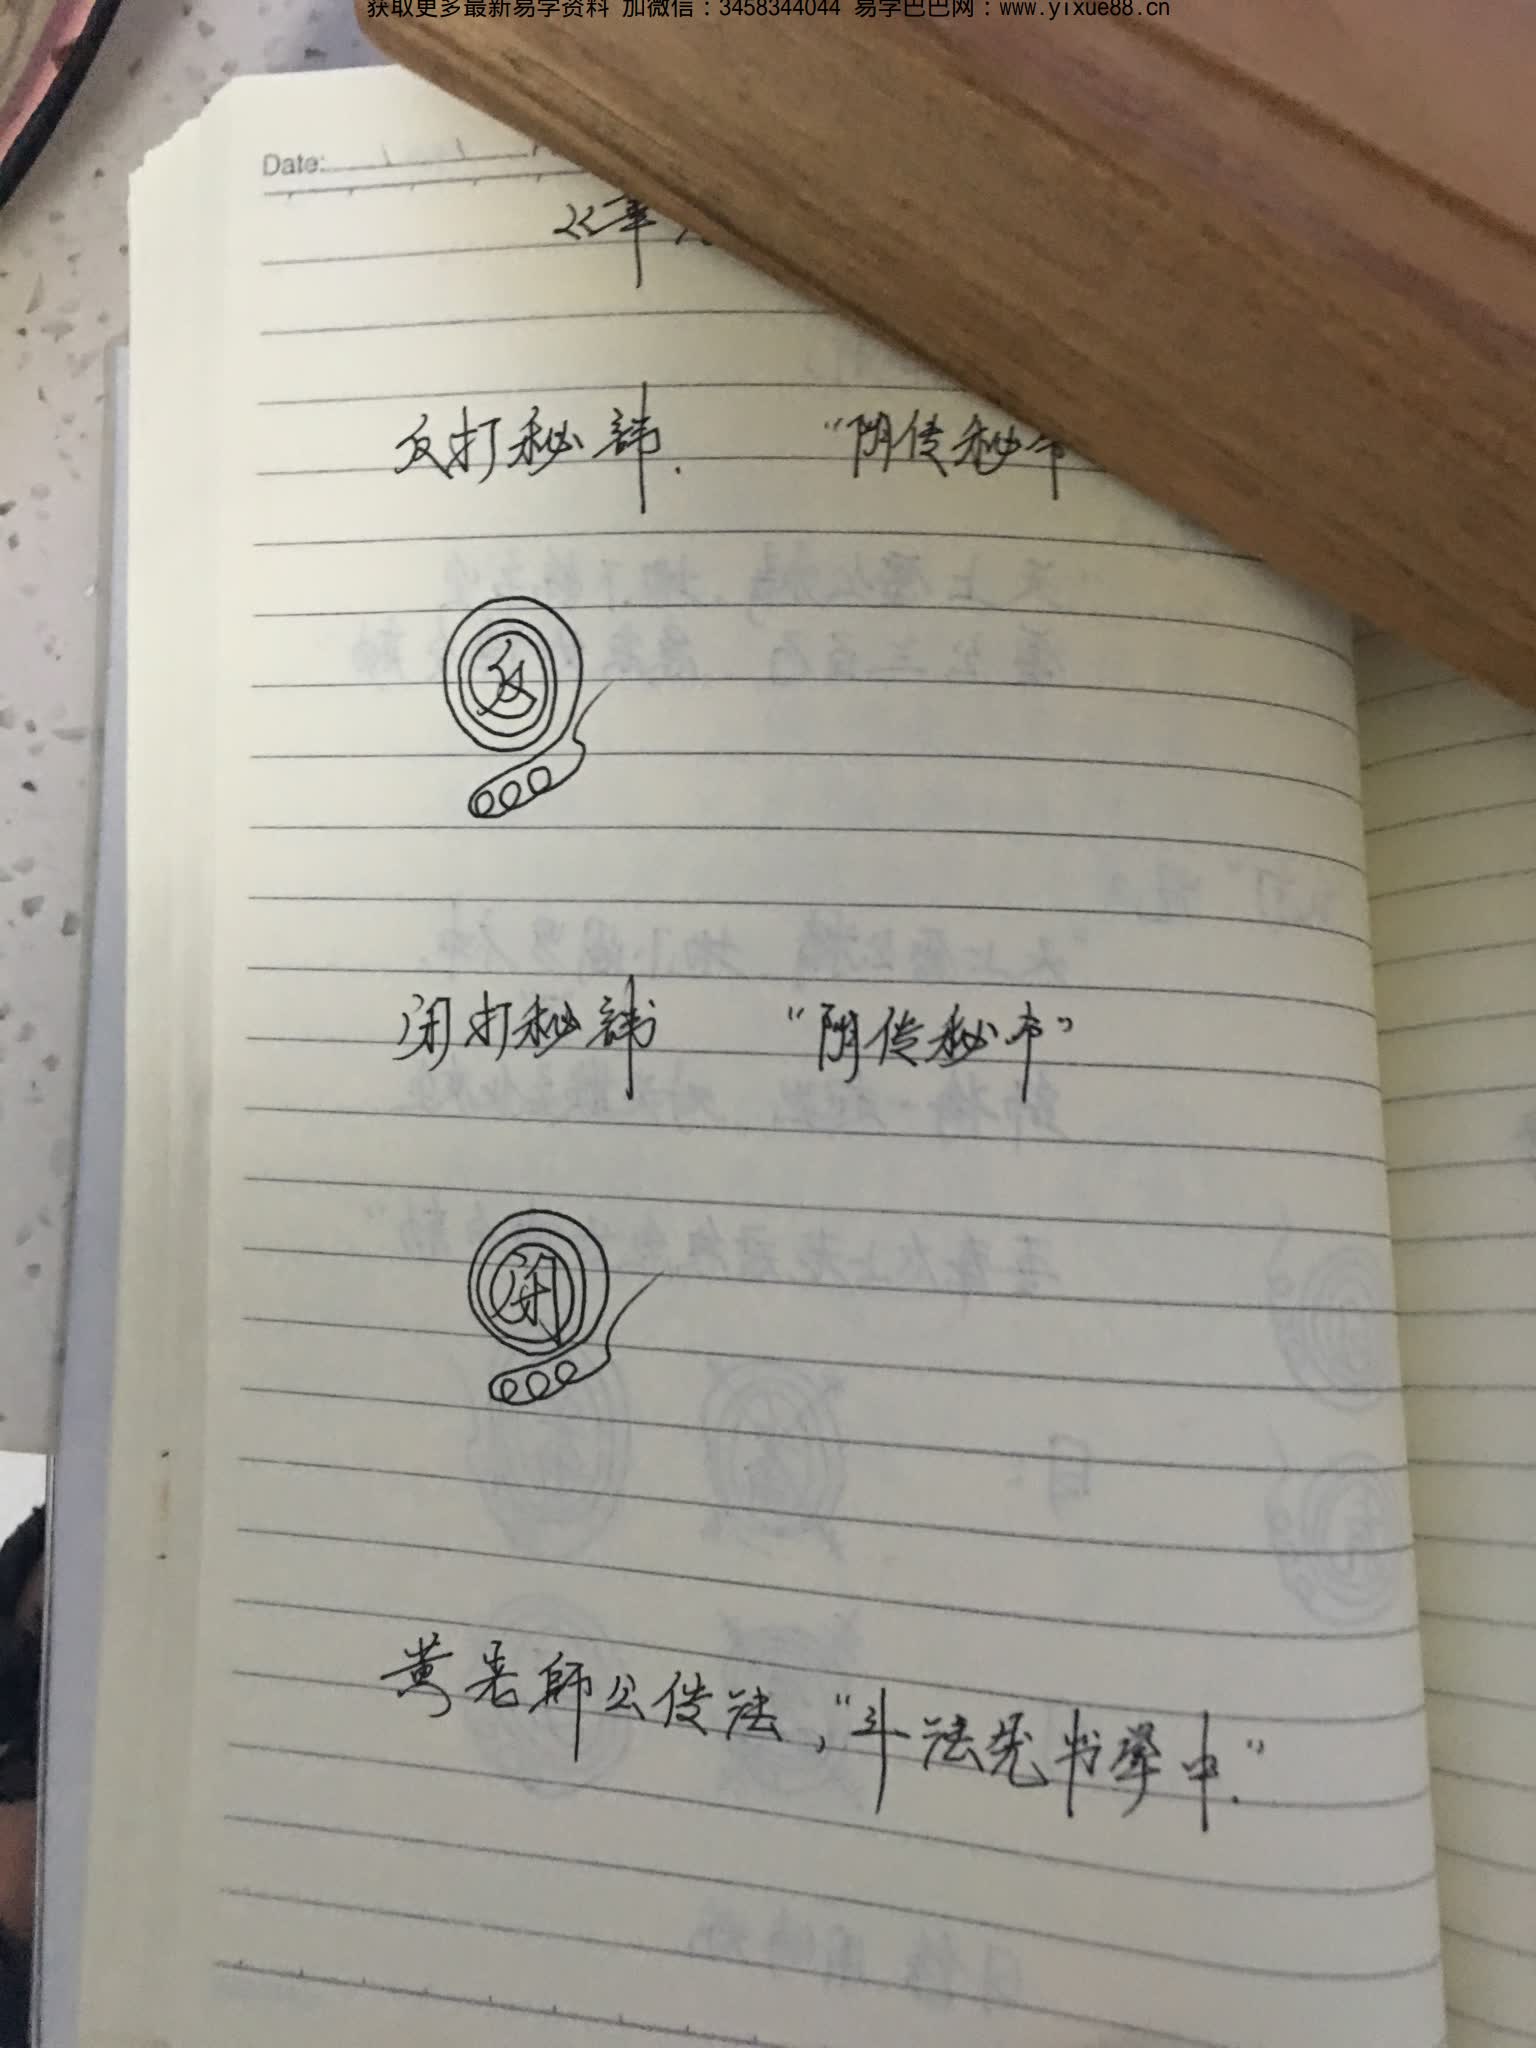 获取更多最新易学资料 加微信：3458344044 易学巴巴网：www.yixue88.cn
Date:
反打秘諱. “阴传秘书
反
闭打秘諱 “阴传秘书”
闭
黄老師公传法，“斗法先书掌中.”